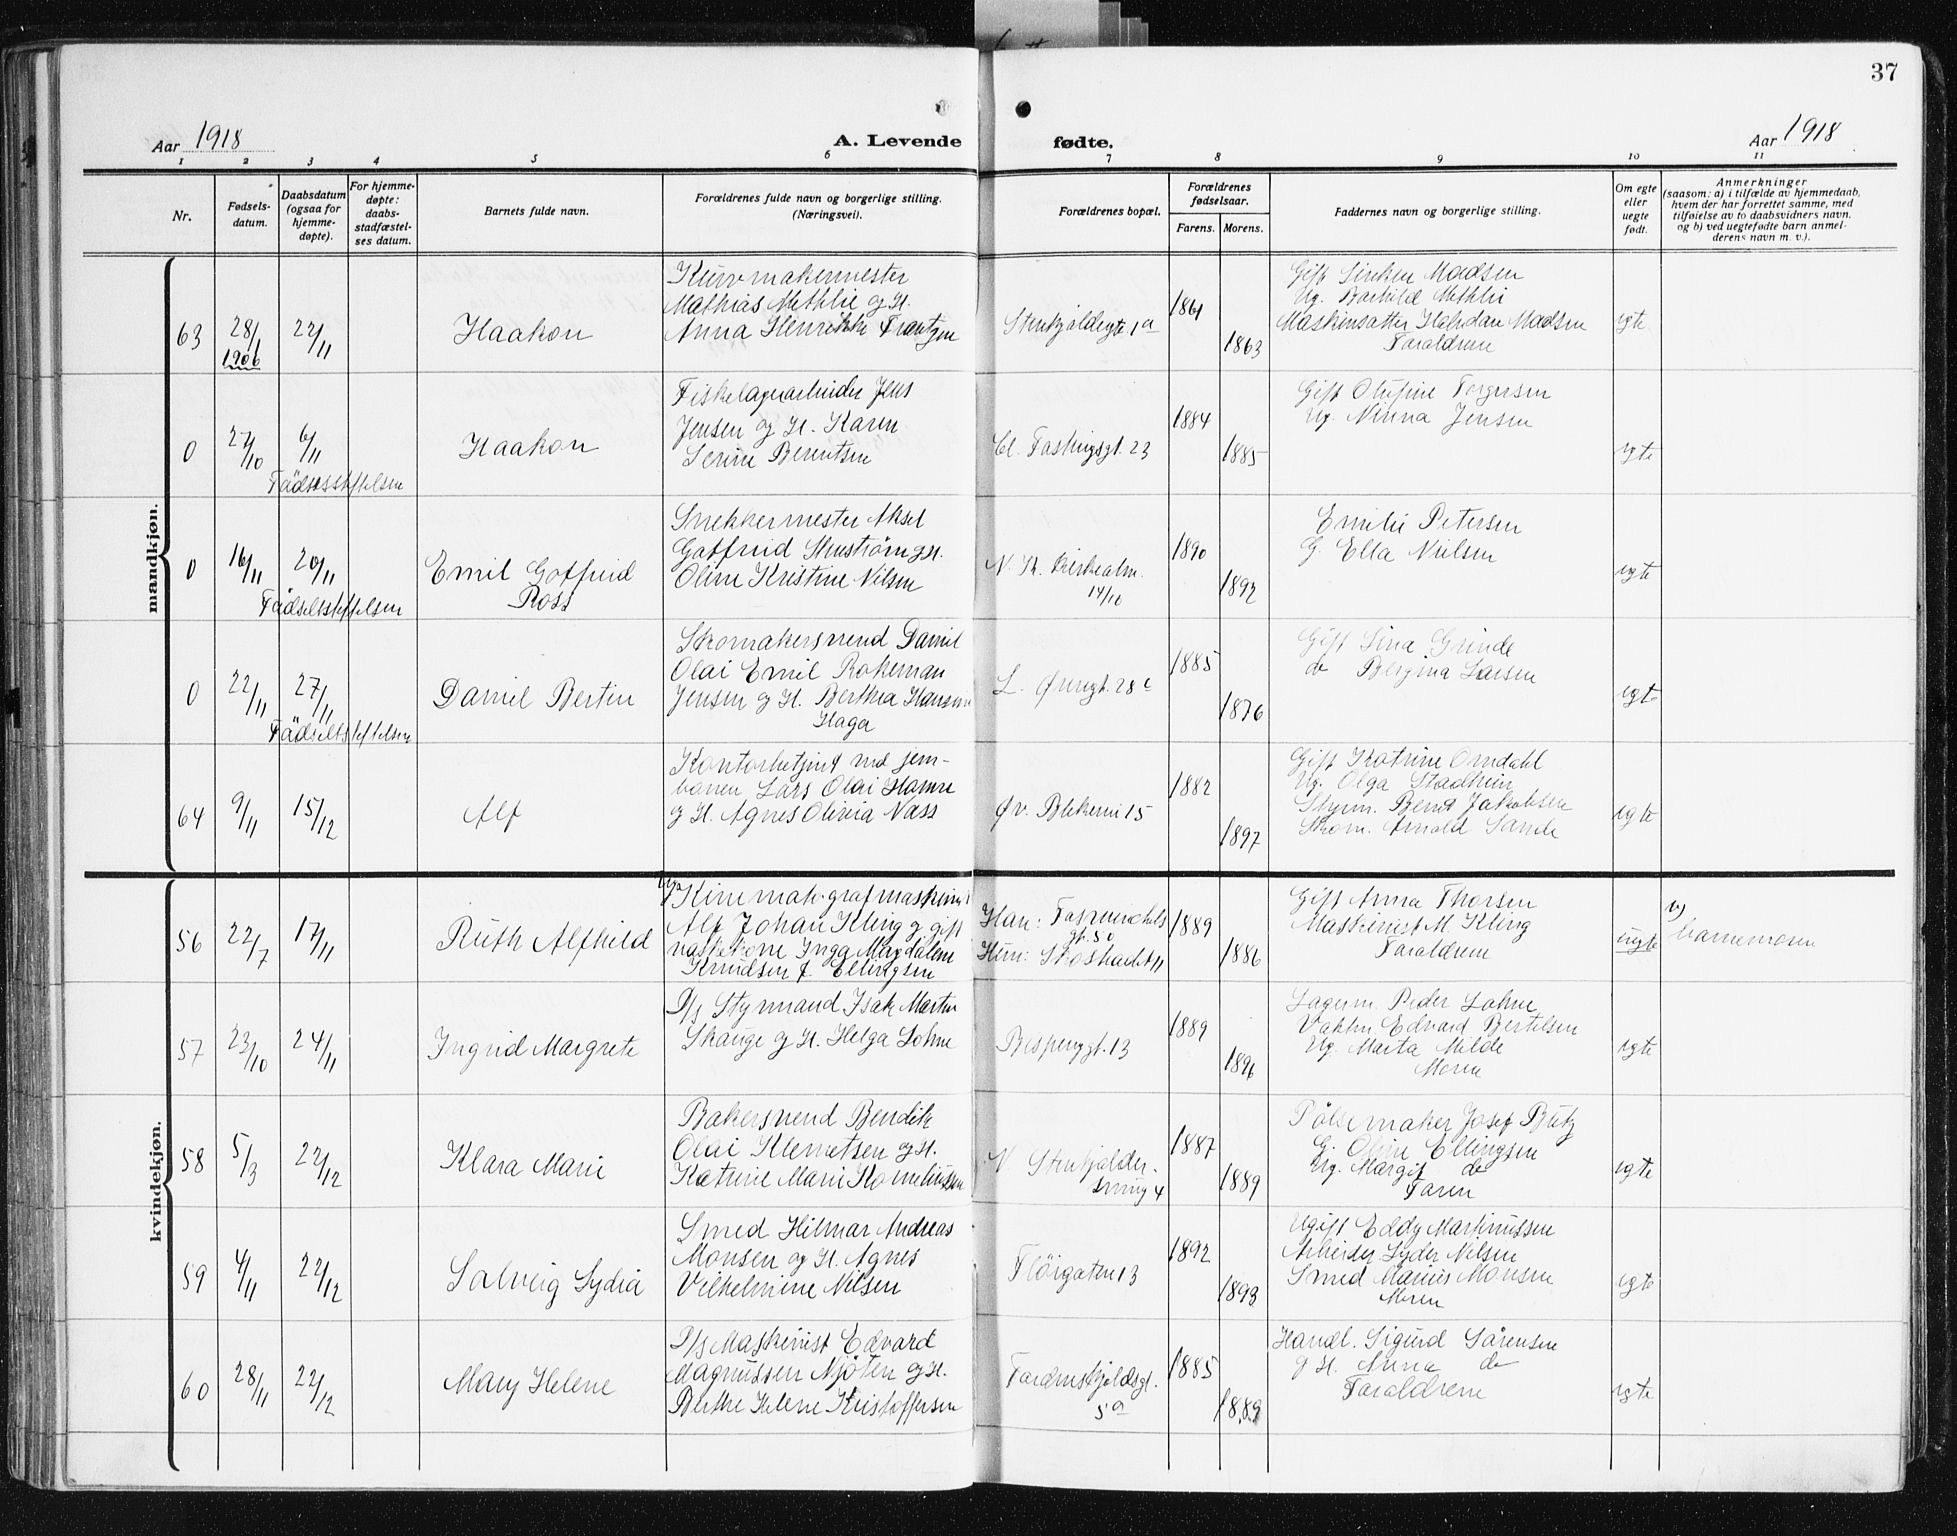 37
Aar 1918
A. Levende fødte.
Aar 1918
1 2 3 4 5 6 7 8 9 10 11
Nr.
Fødsels-
datum.
Daabsdatum
(ogsaa for
hjemme-
døpte).
For hjemme-
døpte:
daabs-
stadfæstel-
ses datum.
Barnets fulde navn.
Forældrenes fulde navn og borgerlige stilling.
(Næringsvei).
Forældrenes bopæl.
Forældrenes
fødselsaar.
Farens. Morens.
Faddernes navn og borgerlige stilling.
Om egte
eller
uegte
født.
Anmerkninger
(saasom: a) i tilfælde av hjemmedaab,
hvem der har forrettet samme, med
tilføielse av to daabsvidners navn.
og b) ved uegtefødte barn anmel-
derens navn m. v.).
mandkjøn.
63
28/1
1906
22/11
Haakon
Kurvmakermester
Mathias Methlie og H.
Anna Henrikke Frantzen
1a
1861
1863
Gift Sirken Madsen
Ug. Borhild Methlie
Maskinsætter Halfdan Madsen
Foraldrene
egte
0
27/10
6/11
Fødselsstiftelsen
Haakon
Fiskelagerarbeider Jens
Jensen og H. Karen
Serine Berentsen
Cl. Fastingsgt. 23
1884
1885
Gift Olufine Torgersen
Ug. Ninna Jensen
egte
0
16/11
20/11
Fødselsstiftelsen
Emil Gotfried
Ross
Snekkermester Aksel
Gotfried Stenstrøm og H.
Oline Kristine Nilsen
14/16
1890
1892
Emilie Petersen
G. Ella Nielsen
egte
0
22/11
27/11
Fødselsstiftelsen
Daniel Bertin
Skomakersvend Daniel
Olai Emil Rokeman
Jensen og H. Berthea Hansine
Haga
L. Øvregt. 28c
1885
1876
Gift Sina Grinde
do Bergina Larsen
egte
64
9/11
15/12
Alf
Kontorbetjent ved jern-
banen Lars Olai Hamre
og H. Agnes Olivia Næss
Øv. Blekevei 15
1882
1897
Gift Katrine Omdahl
Ug. Olga Stadheim
Styrm. Bernt Jakobsen
Skom. Arnold Sande
egte
kvindekjøn.
56
22/7
17/11
Ruth Alfhild
Ug. Kinematografmaskinist
Alf Johan Kling og gift
vaskekone Inga Magdalene
Knudsen f. Ellingsen
Han:
gt. 50
Hun: Skostrædet 11
1889
1886
Gift Anna Thorsen
Maskinist M. Kling
Foraldrene
uegte
v) barnemoren
57
23/10
24/11
Ingrid Margrete
D/s Styrmand Isak Martin
Skauge og H. Helga Lohne
Bispengt. 13
1889
1896
Lagerm. Peder Lohne
Vaktm. Edvard Bertelsen
Ug. Marta Milde
Moren
egte
58
5/3
22/12
Klara Marie
Bakersvend Bendik
Olai Klemetsen og H.
Katrine Marie Korneliussen
V. Stenkjelder-
smug 4
1887
1889
Pølsemaker Josef Butz
G. Oline Ellingsen
Ug. Margit do
Faren
egte
59
4/11
22/12
Solveig Lydia
Smed Hilmar Andreas
Monsen og H. Agnes
Vilhelmine Nilsen
Fløigaten 13
1892
1893
Ugift Eddy Martinussen
Arbeider Lyder Nilsen
Smed Marius Monsen
Moren
egte
60
28/11
22/12
Mary Helene
D/s Maskinist Edvard
Magnussen Njøten og H.
Berthe Helene Kristoffersen
Tordenskjoldsgt.
5a
1885
1889
Handl. Sigurd Sørensen
og H. Anna do
Foraldrene
egte